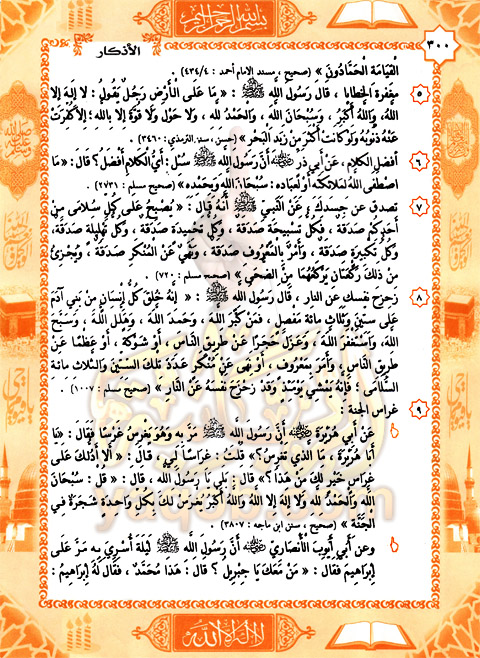 بسم الله الرحمن الرحيم
٣٠٠
الأذكار
الْقِيَامَةِ الْحَمَّادُونَ » (صحيح ، مسند الإمام أحمد : ٤٣٤/٤)
٥ مغفرة الخطايا ، قال رسول الله ﷺ : « مَا عَلَى الْأَرْضِ رَجُلٌ يَقُولُ : لَا إِلَهَ إِلَّا
اللهُ، وَاللهُ أَكْبَرُ ، وَسُبْحَانَ اللهِ ، وَالْحَمْدُ لِلهِ ، وَلَا حَوْلَ وَلَا قُوَّةَ إِلَّا بِاللهِ؛ إِلَّا كُفِّرَتْ
عَنْهُ ذُنُوبُهُ وَلَوْ كَانَتْ أَكْثَرَ مِنْ زَبَدِ الْبَحْرِ » (حسن، سنن الترمذي: ٣٤٦٠) .
٦ أفضل الكلام، عَنْ أَبِي ذَرٍّ أَنَّ رَسُولَ اللهِ ﷺ سُئِلَ : أَيُّ الْكَلَامِ أَفْضَلُ؟ قَالَ: «مَا
اصْطَفَى اللهُ لِمَلَائِكَتِهِ أَوْ لِعِبَادِهِ: سُبْحَانَ اللهِ وَبِحَمْدِهِ» (صحيح مسلم : ٢٧٣١) .
٧ تصدق عن جسدك ، عَنِ النَّبِيِّ ﷺ أَنَّهُ قَالَ : «يُصْبِحُ عَلَى كُلِّ سُلَامَى مِنْ
أَحَدِكُمْ صَدَقَةٌ ، فَكُلُّ تَسْبِيحَةٍ صَدَقَةٌ ، وَكُلُّ تَحْمِيدَةٍ صَدَقَةٌ، وَكُلُّ تَهْلِيلَةٍ صَدَقَةٌ،
وَكُلُّ تَكْبِيرَةٍ صَدَقَةٌ، وَأَمْرٌ بِالْمَعْرُوفِ صَدَقَةٌ ، وَنَهْيٌ عَنِ الْمُنْكَرِ صَدَقَةٌ ، وَيُجْزِئُ
مِنْ ذَلِكَ رَكْعَتَانِ يَرْكَعُهُمَا مِنَ الضُّحَى » (صحيح مسلم : ٧٢٠) .
٨ زحزح نفسك عن النار ، قال رسول الله ﷺ : « إِنَّهُ خُلِقَ كُلُّ إِنْسَانٍ مِنْ بَنِي آدَمَ
عَلَى سِتِّينَ وَثَلَاثِ مِائَةِ مَفْصِلٍ ، فَمَنْ كَبَّرَ اللهَ ، وَحَمِدَ اللهَ ، وَهَلَّلَ اللهَ ، وَسَبَّحَ
اللهَ، وَاسْتَغْفَرَ اللهَ ، وَعَزَلَ حَجَرًا عَنْ طَرِيقِ النَّاسِ ، أَوْ شَوْكَةً ، أَوْ عَظْمًا عَنْ
طَرِيقِ النَّاسِ ، وَأَمَرَ بِمَعْرُوفٍ، أَوْ نَهَى عَنْ مُنْكَرٍ عَدَدَ تِلْكَ السِّتِّينَ وَالثَّلَاثِ مِائَةِ
السُّلَامَى ؛ فَإِنَّهُ يَمْشِي يَوْمَئِذٍ وَقَدْ زَحْزَحَ نَفْسَهُ عَنِ النَّارِ » (صحيح مسلم : ١٠٠٧) .
٩ غراس الجنة :
عَنْ أَبِي هُرَيْرَةَ أَنَّ رَسُولَ اللهِ ﷺ مَرَّ بِهِ وَهُوَ يَغْرِسُ غَرْسًا فَقَالَ : «يَا
أَبَا هُرَيْرَةَ ، مَا الَّذِي تَغْرِسُ؟» قُلْتُ : غِرَاسًا لِي ، قَالَ : « أَلَا أَدُلُّكَ عَلَى
غِرَاسٍ خَيْرٍ لَكَ مِنْ هَذَا ؟» قَالَ : بَلَى يَا رَسُولَ اللهِ ، قَالَ : « قُلْ : سُبْحَانَ
اللهِ وَالْحَمْدُ لِلهِ وَلَا إِلَهَ إِلَّا اللهُ وَاللهُ أَكْبَرُ يُغْرَسْ لَكَ بِكُلِّ وَاحِدَةٍ شَجَرَةٌ فِي
الْجَنَّةِ » (صحيح ، سنن ابن ماجه : ٣٨٠٧) .
وعن أَبِي أَيُّوبَ الْأَنْصَارِيِّ أَنَّ رَسُولَ اللهِ ﷺ لَيْلَةَ أُسْرِيَ بِهِ مَرَّ عَلَى
إِبْرَاهِيمَ فَقَالَ : «مَنْ مَعَكَ يَا جِبْرِيلُ ؟ قَالَ : هَذَا مُحَمَّدٌ، فَقَالَ لَهُ إِبْرَاهِيمُ :
لا إله إلا الله